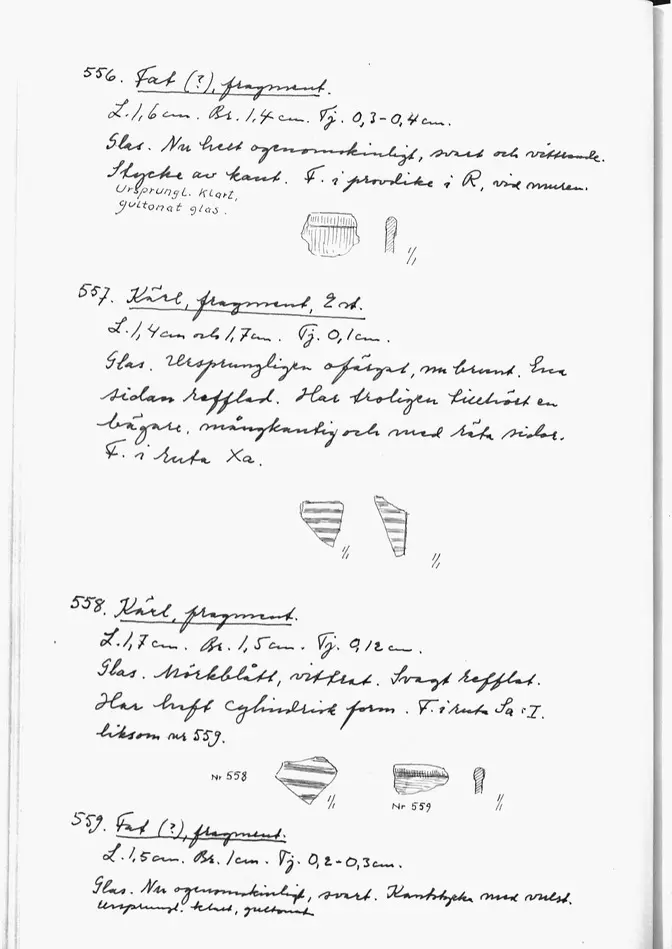 556. Fat (?), fragment.
L. 1,6 cm. Br. 1,4 cm. Tj. 0,3-0,4 cm.
Glas. Nu helt ogenomskinligt, svart och vittrande.
Stycke av kant. F. i provdike i R, vid muren.
Ursprungl. klart,
gultonat glas.
1/1
557. Kärl, fragment, 2 st.
L. 1,4 cm och 1,7 cm. Tj. 0,1 cm.
Glas. Ursprungligen ofärgat, nu brunt. Ena
sidan refflad. Har troligen tillhört en
bägare, mångkantig och med räta sidor.
F. i ruta Xa.
1/1 1/1
558. Kärl, fragment.
L. 1,7 cm. Br. 1,5 cm. Tj. 0,12 cm.
Glas. Mörkblått, vittrat. Svagt refflat.
Har haft cylindrisk form. F. i ruta Sa:I.
liksom nr 559.
Nr 558 1/1 Nr 559 1/1
559. Fat (?), fragment.
L. 1,5 cm. Br. 1 cm. Tj. 0,2-0,3 cm.
Glas. Nu ogenomskinligt, svart. Kantstycke med vulst.
Ursprungl. klart, gultonat